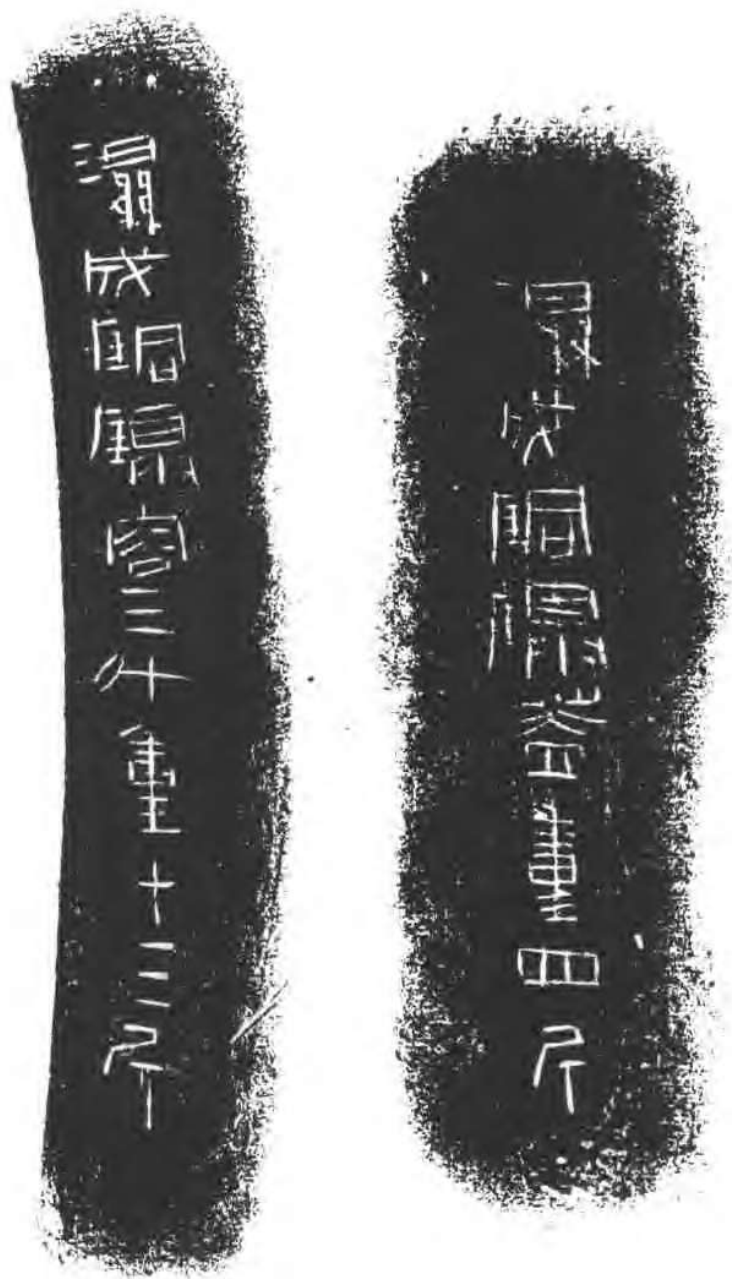 濕成銅蓋重四斤
濕成銅容三斗重十三斤